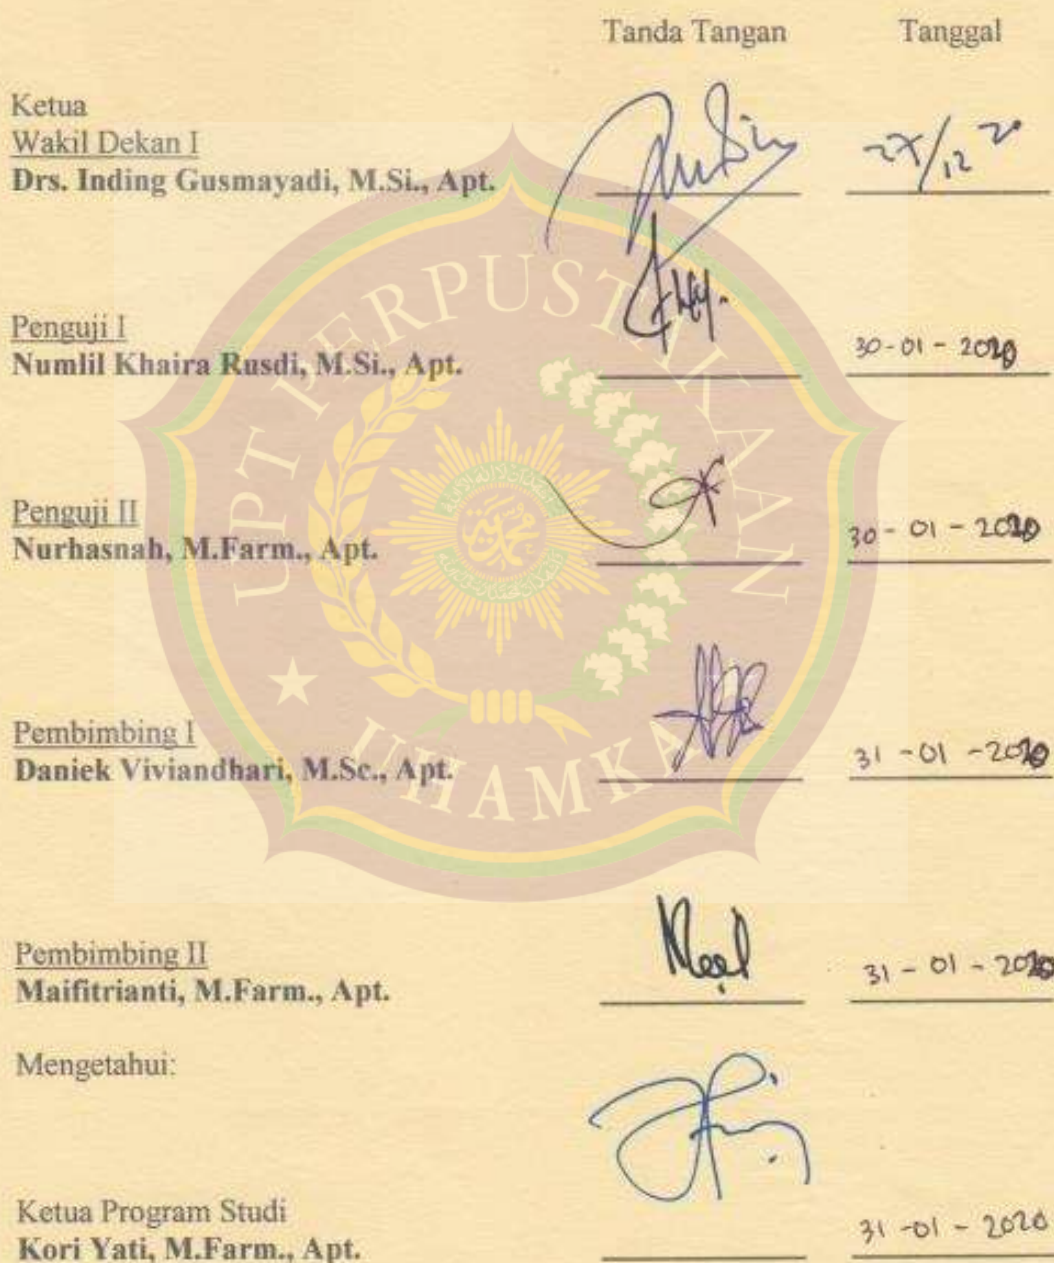 Tanda Tangan Tanggal
Ketua
Wakil Dekan I
Drs. Inding Gusmayadi, M.Si., Apt. 27/12 20
Penguji I
Numlil Khaira Rusdi, M.Si., Apt. 30-01-2020
Penguji II
Nurhasnah, M.Farm., Apt. 30-01-2020
Pembimbing I
Daniek Viviandhari, M.Sc., Apt. 31-01-2020
Pembimbing II
Maifitrianti, M.Farm., Apt. 31-01-2020
Mengetahui:
Ketua Program Studi
Kori Yati, M.Farm., Apt. 31-01-2020
UPT PERPUSTAKAAN
UHAMKA